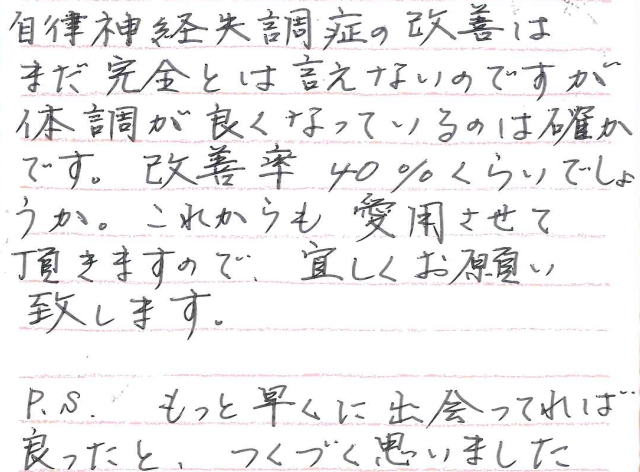 自律神経失調症の改善は
まだ完全とは言えないのですが
体調が良くなっているのは確か
です。改善率 40%くらいでしょ
うか。これからも 愛用させて
頂きますので、宜しくお願い
致します。
P.S. もっと早くに出会ってれば
良ったと、つくづく思いました